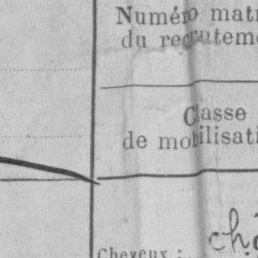 Numéro matr
du recruteme
Classe
de mobilisati
Cheveux : châ